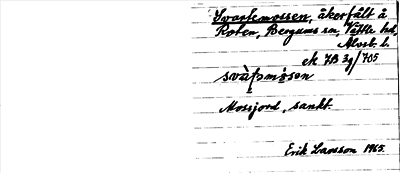 Svartemossen, åkerfält å
Roten, Bergums sn, Vättle hd,
Älvsb. l.
ek 7B 3g/705
svàʈmɷ̀sen
Mossjord, sankt.
Erik Larsson 1965.